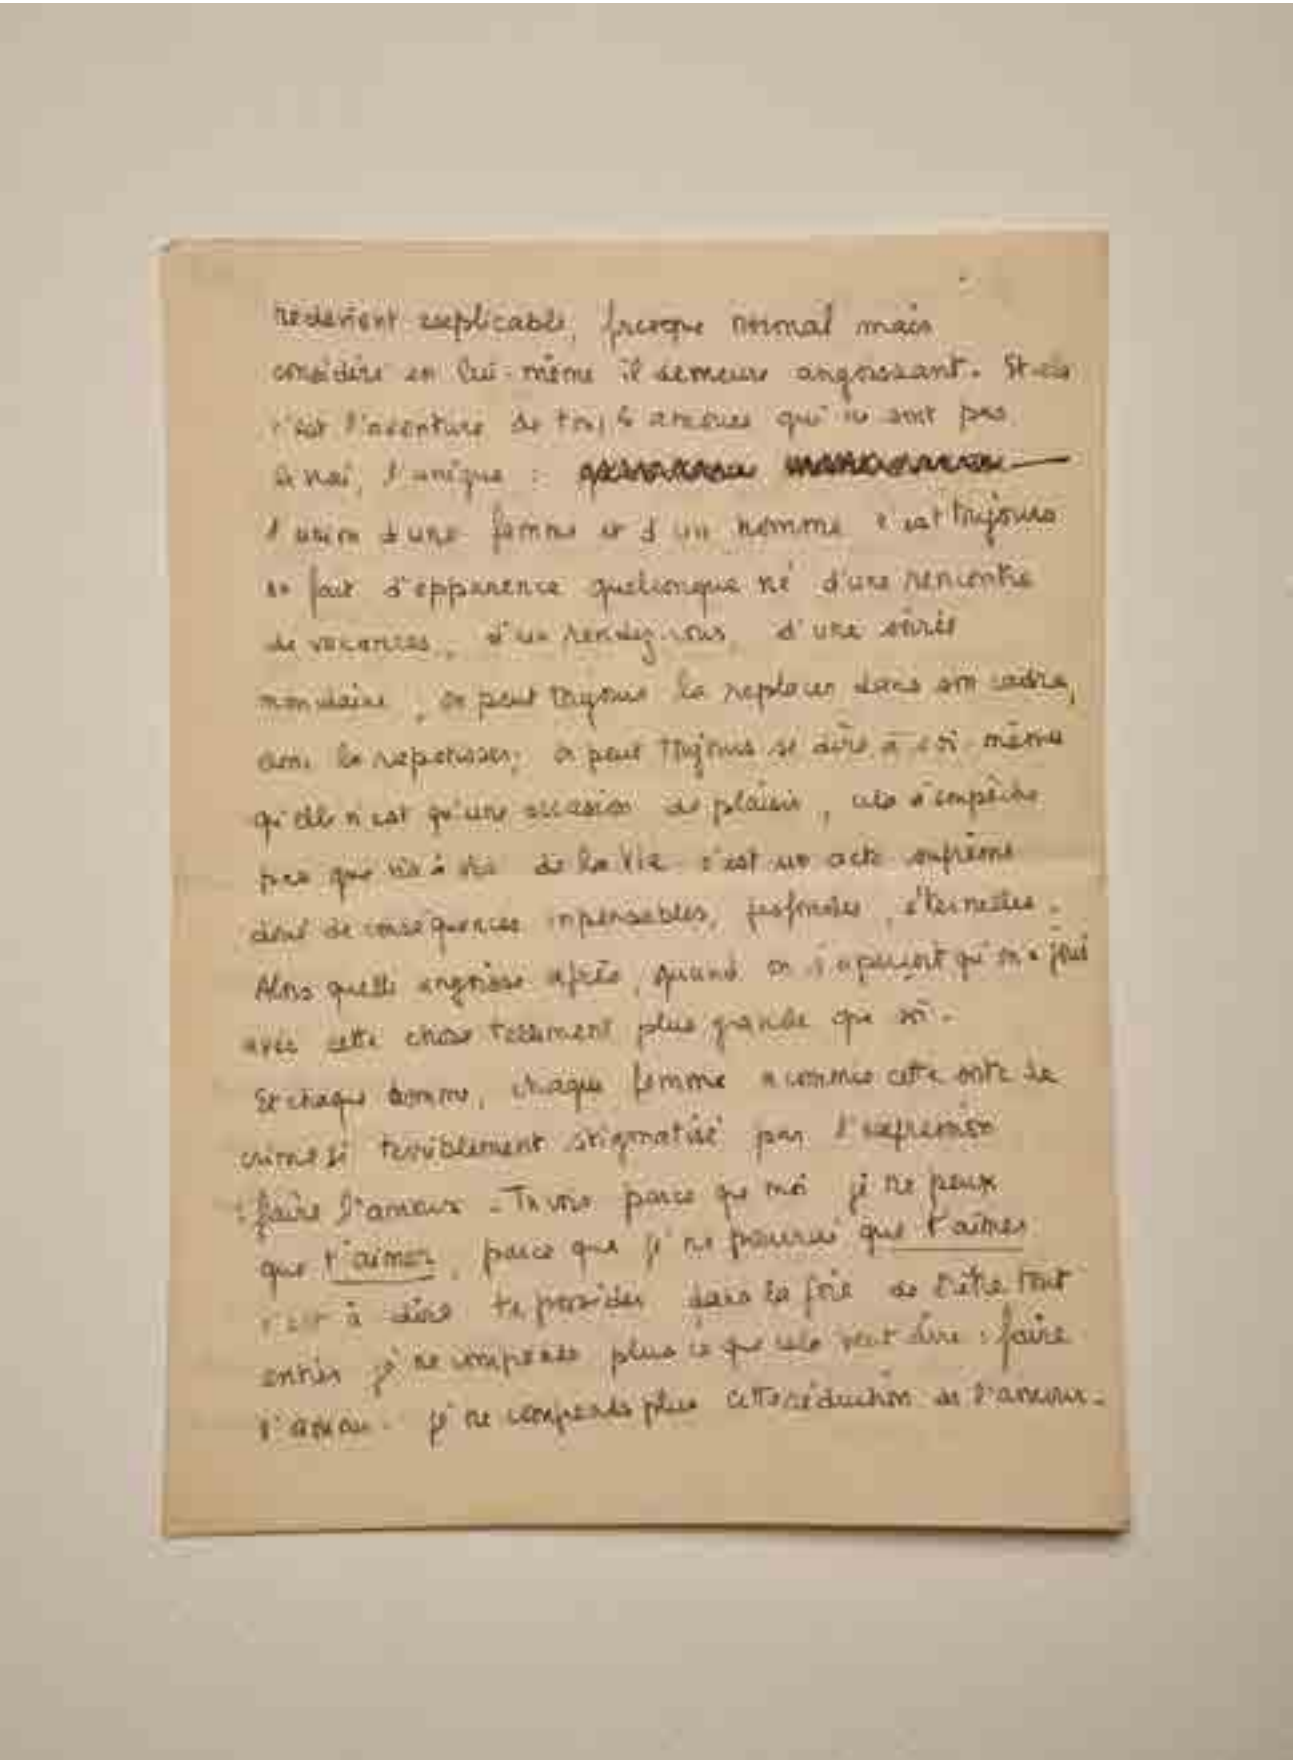 redevient explicable, presque normal mais
considéré en lui-même il demeure angoissant. Et cela
c'est l'aventure de tous les amours qui ne sont pas
le vrai, l'unique :
l'union d'une femme et d'un homme c'est toujours
un fait d'apparence quelconque né d'une rencontre
de vacances, d'un rendez-vous, d'une soirée
mondaine, on peut toujours la replacer dans son cadre,
la rapetisser, on peut toujours se dire à soi-même
qu'elle n'est qu'une occasion de plaisir, cela n'empêche
pas que vis à vis de la vie c'est un acte suprême
doué de conséquences impensables, profondes, éternelles.
Alors quelle angoisse après, quand on s'aperçoit qu'on a joué
avec cette chose tellement plus grande que soi.
Et chaque homme, chaque femme a commis cette sorte de
crime si terriblement stigmatisé par l'expression
: faire l'amour. Tu vois parce que moi je ne peux
que t'aimer, parce que je ne pourrai que t'aimer
c'est à dire te posséder dans la joie de l'être tout
entier je ne comprends plus ce que cela veut dire : faire
l'amour. je ne comprends plus cette réduction de l'amour.